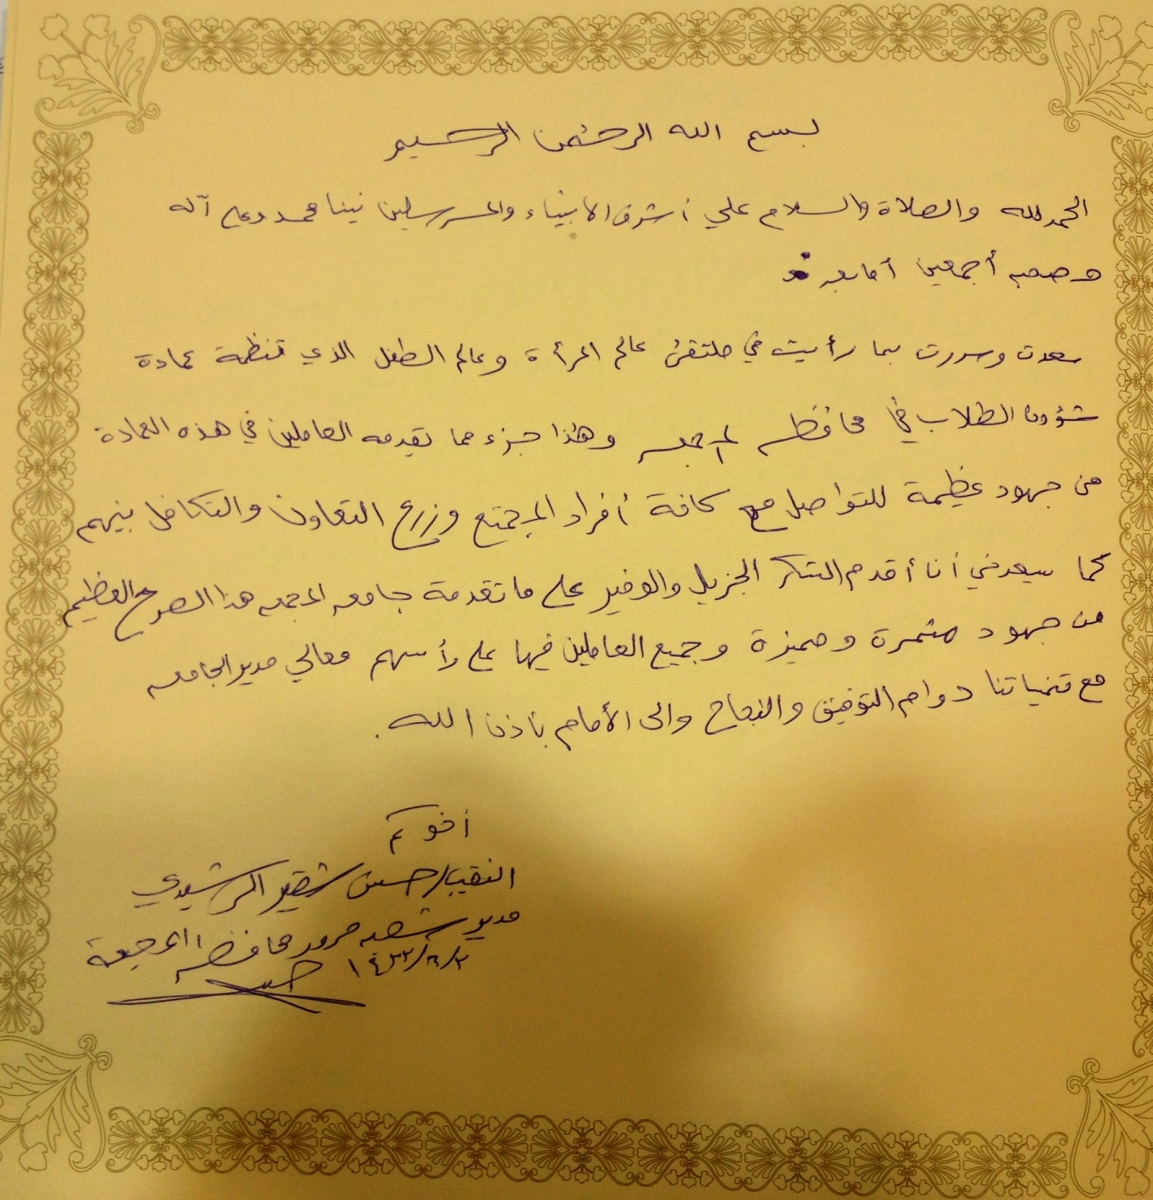 بسم الله الرحمن الرحيم
الحمد لله والصلاة والسلام علي أشرف الأنبياء والمرسلين نبينا محمد وعلى آله
وصحبه أجمعين أما بعد
سعدت وسررت بما رأيت في ملتقى عالم المرأة وعالم الطفل الذي تنظمة عمادة
شؤون الطلاب في محافظه المجمعه وهذا جزء مما يقدمه العاملين في هذه العمادة
من جهود عظيمة للتواصل مع كافة أفراد المجتمع وزرع التعاون والتكافل بينهم
كما يسعدني أن أقدم الشكر الجزيل والوفير على ما تقدمة جامعه المجمعه هذا الصرح العظيم
من جهود مثمرة ومميزة وجميع العاملين فيها على رأسهم معالي مدير الجامعه
مع تمنياتنا دوام التوفيق والنجاح والى الأمام بأذن الله.
أخوكم
النقيب/حسين شقير الرشيدي
مدير شعبه مرور محافظه المجمعة